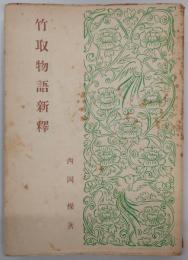 竹取物語新釋
西岡 操著